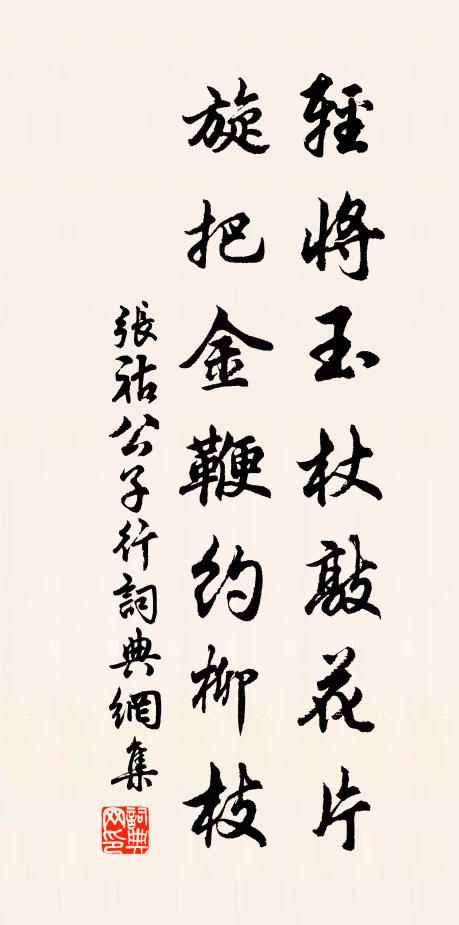 輕將玉杖敲花片
旋把金鞭約柳枝
張祜公子行詞典網集
詞典網印